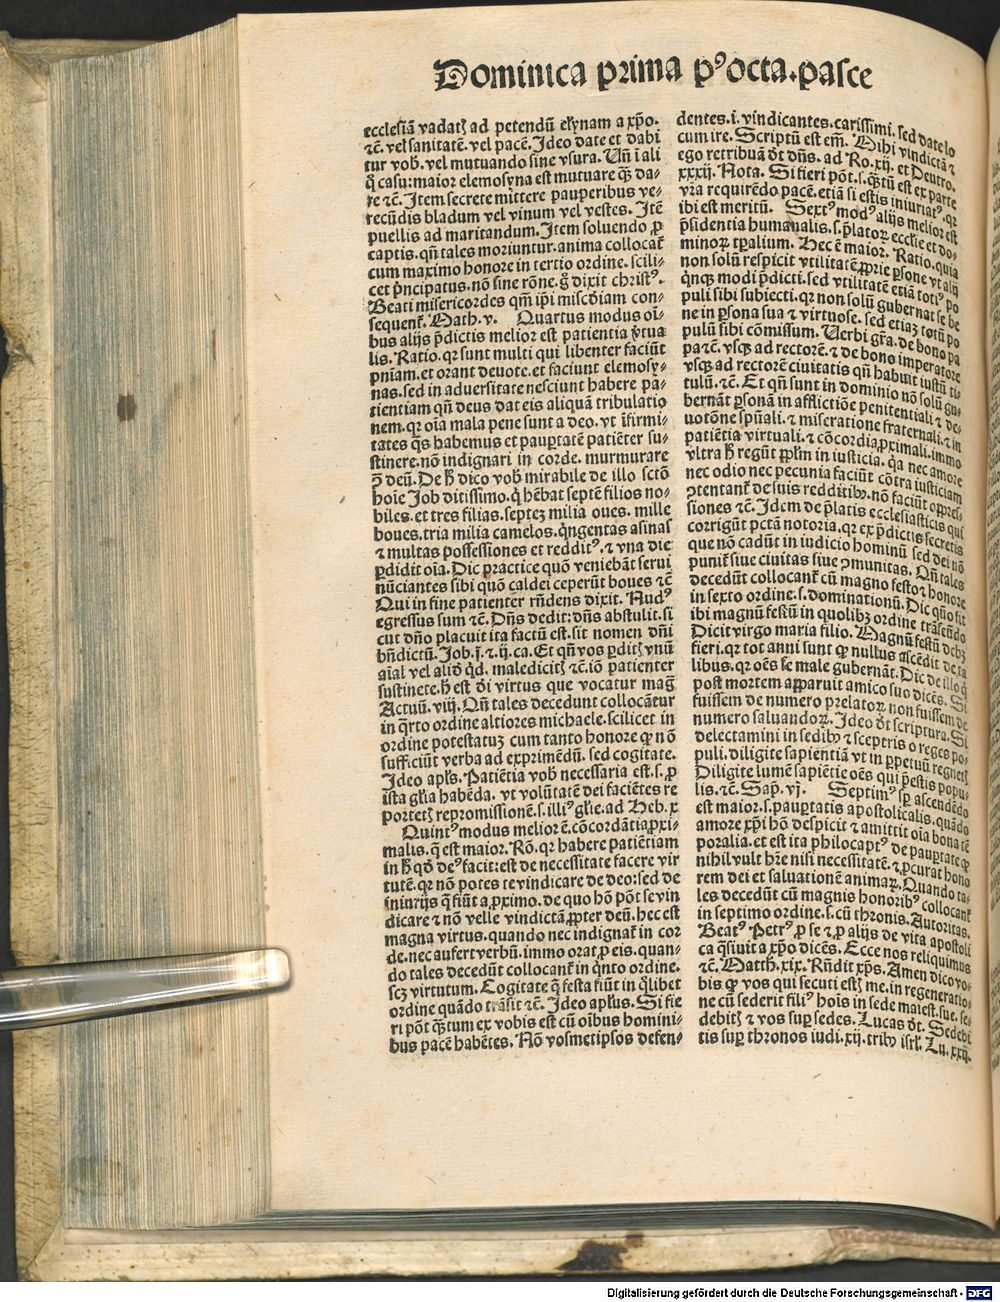 Dominica prima pꝰ octa. pasce
ecclesiā vadatꝭ ad petendū elꝫynam a xp̄o.
⁊c̄. vel sanitatē. vel pacē. Ideo date et dabi
tur vob̄. vel mutuando sine vsura. Un̄ i ali
q̊ casu: maior elemosyna est mutuare q̄ꝫ da-
re ⁊c̄. Itē secrete mittere pauperibus ve-
recūdis bladum vel vinum vel vestes. Itē
puellis ad maritandum. Item soluendo ꝓ
captis. qn̄ tales moriuntur. anima collocat᷑
cum maximo honore in tertio ordine. scili-
cet pͥncipatus. nō sine rōne. g̊ dixit christꝰ.
Beati misericordes qm̄ ip̄i misc̄diam con-
sequent᷑. Math. v. Quartus modus oī-
bus alijs p̄dictis melior est patientia v̓tua
lis. Ratio. qꝛ sunt multi qui libenter faciūt
pn̄iam. et orant deuote. et faciunt elemosy-
nas. sed in aduersitate nesciunt habere pa-
tientiam qn̄ deus dat eis aliquā tribulatio
nem. qꝛ oīa mala pene sunt a deo. vt īfirmi-
tates q̄s habemus et pauꝑtatē patiēter su-
stinere. nō indignari in corde. murmurare
ꝯ̄ deū. De h̄ dico vob̄ mirabile de illo sctō
hoīe Job ditissimo. q̊ hēbat septē filios no-
biles. et tres filias. septeꝫ milia oues. mille
boues. tria milia camelos. q̊ngentas asinas
⁊ multas possessiones et redditꝰ. ⁊ vna die
ꝑdidit oīa. Dic practice quō veniebāt serui
nūciantes sibi quō caldei ceperūt boues ⁊c̄
Qui in fine patienter rn̄dens dixit. Nudꝰ
egressus sum ⁊c̄. Dn̄s dedit: dn̄s abstulit. si
cut dn̄o placuit ita factū est. sit nomen dn̄i
bn̄dictū. Job. j. ⁊ .ij. ca. Et qn̄ vos ꝑditꝭ vnū
aīal vel aliḋ q̊d. maledicitꝭ ⁊c̄. iō patienter
sustinete. h̄ est d̄i virtus que vocatur maḡ
Actuū. viij. Qn̄ tales decedunt collocātur
in q̊rto ordine altiores michaele. scilicet in
ordine potestatuꝫ cum tanto honore ꝙ nō
sufficiūt verba ad exprimēdū. sed cogitate.
Ideo apl̄s. Patiētia vob̄ necessaria est. s. ꝓ
ista gl̄ia habēda. vt volūtatē dei faciētes re
portetꝭ repromissionē. s. illiꝰ gl̄ie. ad Heb. x
Quintꝰ modus melior ē. cōcordātia ꝓxi-
malis. q̄ est maior. Rō. qꝛ habere patiētiam
in h̄ qd̄ deꝰ facit: est de necessitate facere vir
tutē. qꝛ nō potes te vindicare de deo: sed de
iniurijs q̄ fiūt a ꝓximo. de quo hō pōt se vin
dicare ⁊ nō velle vindictā ꝓpter deū. hec est
magna virtus. quando nec indignat᷑ in cor
de. nec aufert verbū. immo orat ꝓ eis. quan-
do tales decedūt collocant᷑ in q̊nto ordine.
scꝫ virtutum. Cogitate q̄ festa fiūt in q̊libet
ordine quādo trāsit ⁊c̄. Ideo apl̄us. Si fie
ri pōt q̄ꝫtum ex vobis est cū oībus homini-
bus pacē habētes. Nō vosmetipsos defen-
dentes. i. vindicantes. carissimi. sed date lo
cum ire. Scriptū est em̄. Mihi vindictā ⁊
ego retribuā dt̄ dn̄s. ad Ro. xij. et Deutro.
xxxij. Nota. Si fieri pōt. s. q̄ꝫtū est ex parte
vr̄a requirēdo pacē. etiā si estis iniuriatꝰ. qꝛ
ibi est meritū. Sextꝰ modꝰ alijs melior est
p̄sidentia humanalis. s. p̄latoꝝ ecclīe et do-
minoꝝ tꝑalium. Hec ē maior. Ratio. quia
non solū respicit vtilitatē ꝓprie ꝑsone vt alij
q̊nqꝫ modi p̄dicti. sed vtilitatē etiā totiꝰ po
puli sibi subiecti. qꝛ non solū gubernat se be
ne in ꝑsona sua ⁊ virtuose. sed etiaꝫ totū po
pulū sibi cōmissum. Uerbi gr̄a. de bono pa
pa ⁊c̄. vsqꝫ ad rectorē. ⁊ de bono imperatore
vsqꝫ ad rectorē ciuitatis qn̄ habuit iustū ti-
tulū. ⁊c̄. Et qn̄ sunt in dominio nō solū gu-
bernāt ꝑsonā in afflictiōe penitentiali ⁊ de-
uotōne spūali. ⁊ miseratione fraternali. ⁊ in
patiētia virtuali. ⁊ cōcordia ꝓximali. immo
vltra h̄ regūt ppl̄m in iusticia. q̄a nec amore
nec odio nec pecunia faciūt cōtra iusticiam
ꝯtentant᷑ de suis redditibꝫ. nō faciūt oppres-
siones ⁊c̄. Idem de p̄latis ecclesiasticis qui
corrigūt pctā notoria. qꝛ ex p̄dictis secretis
que nō cadūt in iudicio hominū sed dei nō
punit᷑ siue ciuitas siue ꝯmunitas. Qn̄ tales
decedūt collocant᷑ cū magno festo ⁊ honore
in sexto ordine. s. dominationū. Dic qūo fit
ibi magnū festū in quolibꝫ ordine trāseūdo
Dicit virgo maria filio. Magnū festū debꝫ
fieri. qꝛ tot anni sunt ꝙ nullus ascēdit de ta
libus. qꝛ oēs se male gubernāt. Dic de illo q̊
post mortem apparuit amico suo dicēs. Si
fuissem de numero prelatoꝝ non fuissem de
numero saluandoꝝ. Ideo dt̄ scriptura. Si
delectamini in sedibꝫ ⁊ sceptris o reges po-
puli. diligite sapientiā vt in ꝑpetuū regnetꝭ
Diligite lumē sapiētie oēs qui p̄estis popu-
lis. ⁊c̄. Sap̄. vj. Septimꝰ sꝑ ascendēdo
est maior. s. pauꝑtatis apostolicalis. quādo
amore xp̄i hō despicit ⁊ amittit oīa bona tē
poralia. et est ita philocaptꝰ de pauꝑtate ꝙ
nihil vult hr̄e nisi necessitatē. ⁊ ꝓcurat hono
rem dei et saluationē animaꝝ. Quando ta-
les decedūt cū magnis honoribꝰ collocant᷑
in septimo ordine. s. cū thronis. Autoritas.
Beatꝰ Petrꝰ ꝓ se ⁊ ꝓ alijs de vita apostoli
ca q̄siuit a xp̄o dicēs. Ecce nos reliquimus
⁊c̄. Matth. xix. Rn̄dit xp̄s. Amen dico vo-
bis ꝙ vos qui secuti estꝭ me. in regeneratio-
ne cū sederit filiꝰ hoīs in sede maiest. sue. se-
debitꝭ ⁊ vos suꝑ sedes. Lucas dt̄. Sedebi
tis suꝑ thronos iudi. xij. tribꝫ isrl̄. Lu. xxij.
Digitalisierung gefördert durch die Deutsche Forschungsgemeinschaft - DFG